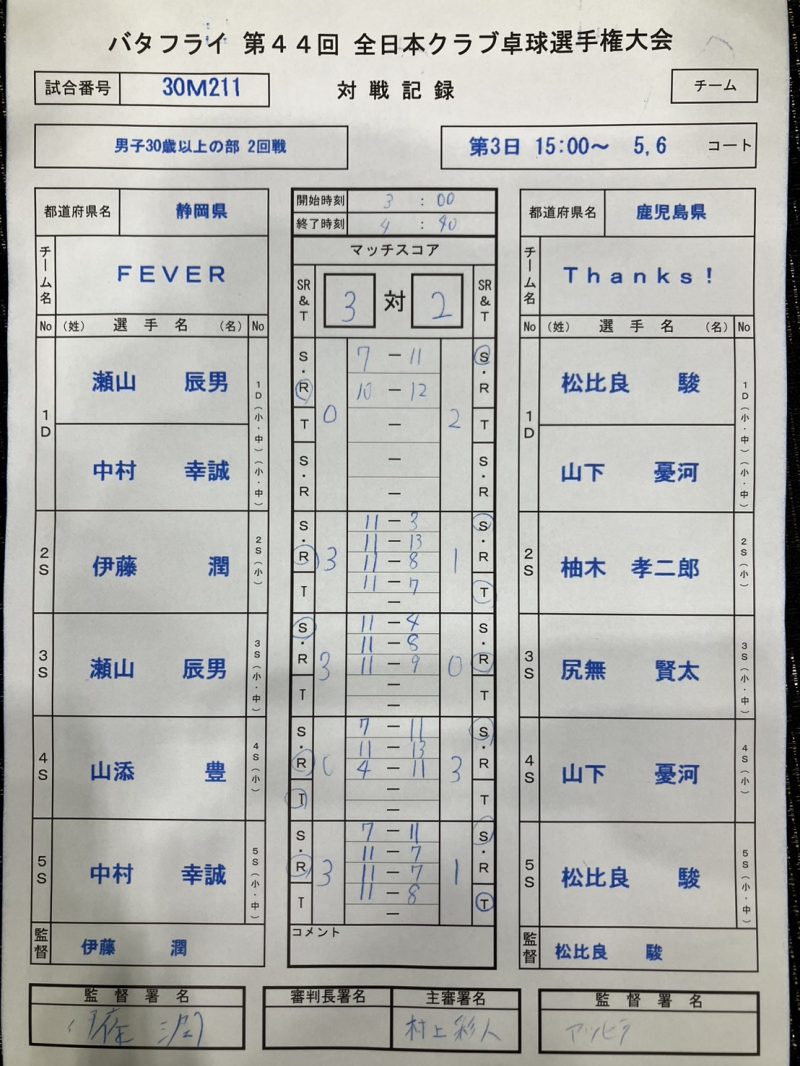 バタフライ 第44回 全日本クラブ卓球選手権大会
試合番号 30M211 対戦記録 チーム
男子30歳以上の部 2回戦 第3日 15:00～ 5,6 コート
都道府県名 静岡県 開始時刻 3 : 00 都道府県名 鹿児島県
終了時刻 4 : 40
チーム名 FEVER マッチスコア チーム名 Thanks!
SR&T 3 対 2 SR&T
No (姓) 選手名 (名) No No (姓) 選手名 (名) No
1D 瀬山 辰男 1D(小・中)(小・中) S・R T S・R 0 7 － 11 2 S・R T S・R 1D 松比良 駿 1D(小・中)(小・中)
10 － 12
－
中村 幸誠 － 山下 憂河
－
2S 伊藤 潤 2S(小) S・R T 3 11 － 3 1 S・R T 2S 柚木 孝二郎 2S(小)
11 － 13
11 － 8
11 － 7
－
3S 瀬山 辰男 3S(小・中) S・R T 3 11 － 4 0 S・R T 3S 尻無 賢太 3S(小・中)
11 － 8
11 － 9
－
－
4S 山添 豊 4S(小) S・R T 0 7 － 11 3 S・R T 4S 山下 憂河 4S(小)
11 － 13
4 － 11
－
－
5S 中村 幸誠 5S(小・中) S・R T 3 7 － 11 1 S・R T 5S 松比良 駿 5S(小・中)
11 － 7
11 － 7
11 － 8
－
監督 伊藤 潤 コメント 監督 松比良 駿
監督署名 審判長署名 主審署名 監督署名
伊藤 潤 村上彩人